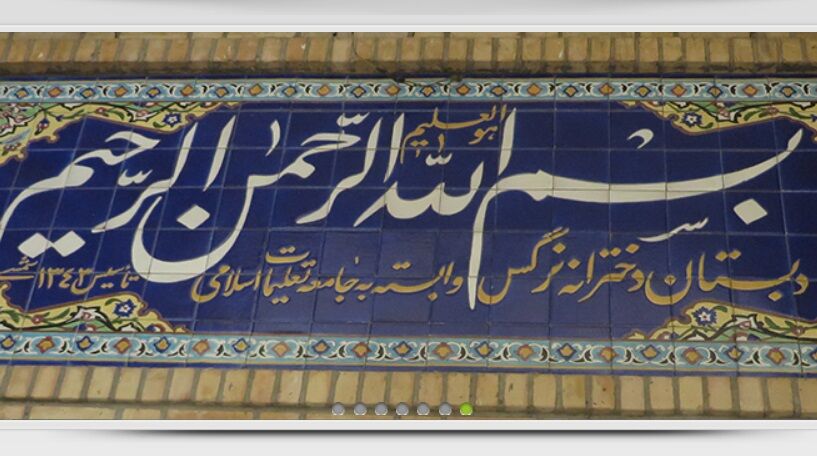 هو العلیم
بسم الله الرحمن الرحیم
دبستان دخترانه نرگس وابسته به جامعه تعلیمات اسلامی
تاسیس ۱۳۴۳ شمسی